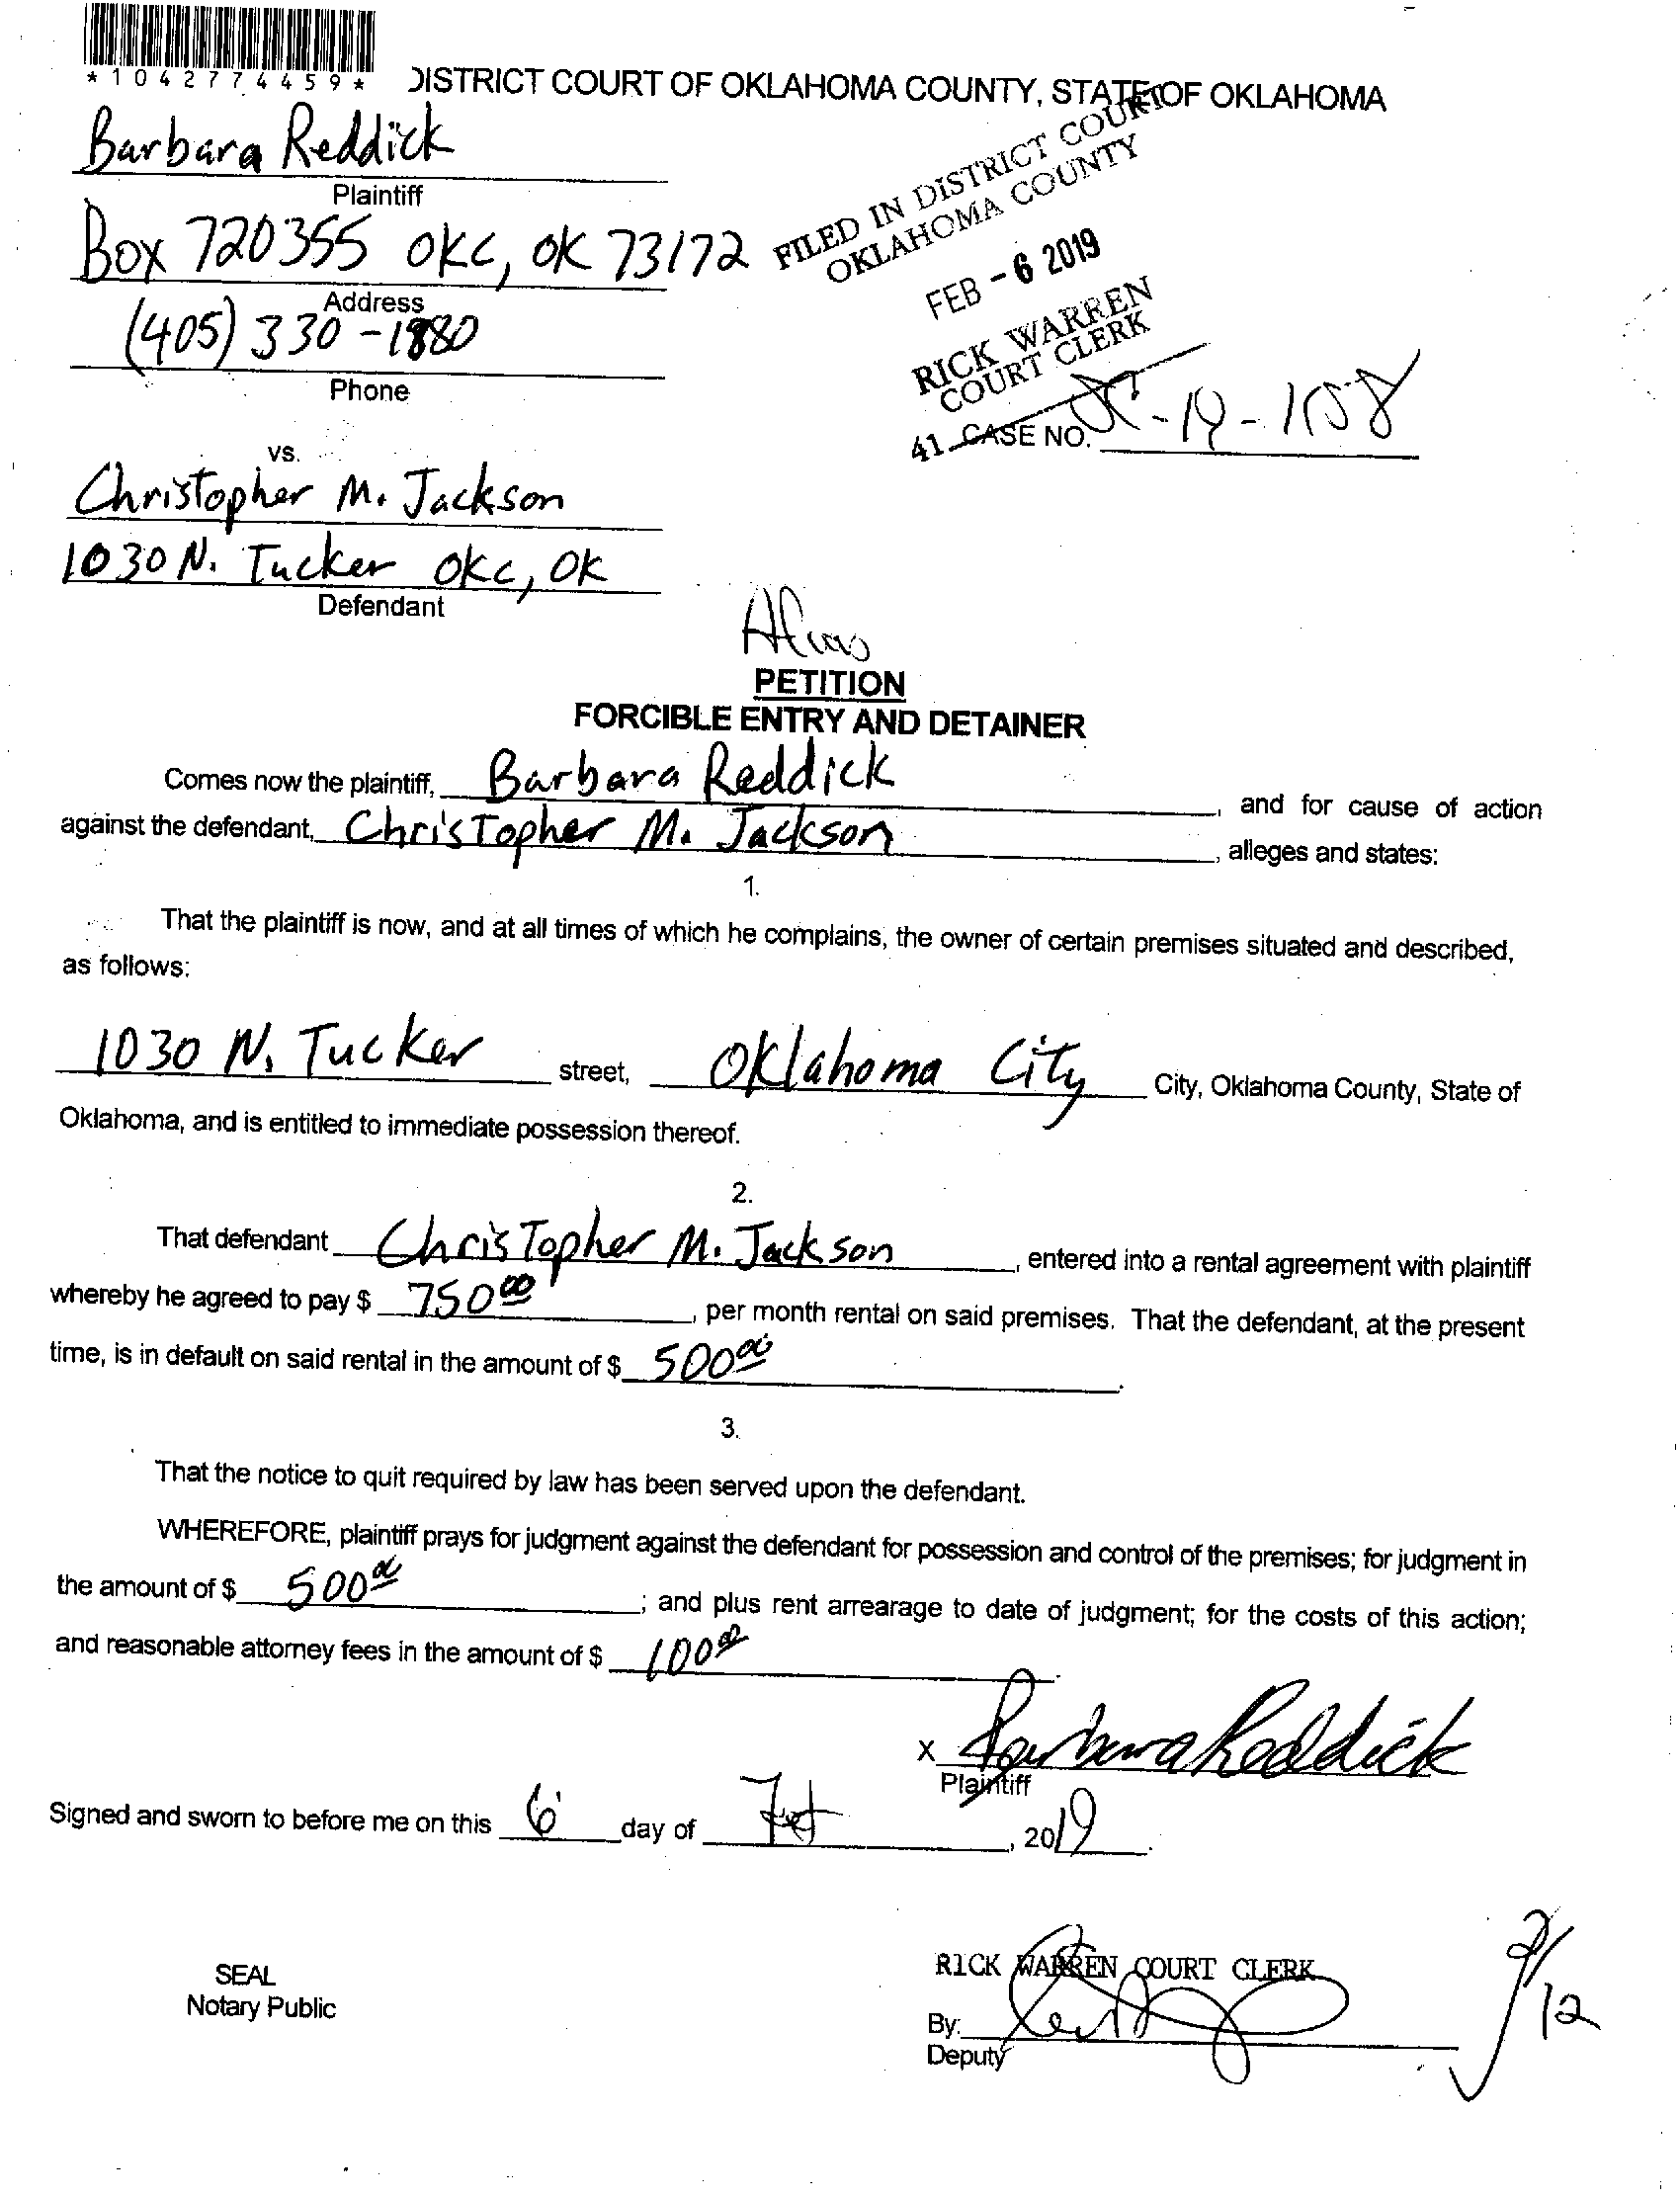 *1042774459*
DISTRICT COURT OF OKLAHOMA COUNTY, STATE OF OKLAHOMA
Barbara Reddick
Plaintiff
Box 720355 OKC, OK 73172
Address
(405) 330-1880
Phone
FILED IN DISTRICT COURT
OKLAHOMA COUNTY
FEB - 6 2019
RICK WARREN
COURT CLERK
41 CASE NO.
vs.
Christopher M. Jackson
1030 N. Tucker OKC, OK
Defendant
Alias
PETITION
FORCIBLE ENTRY AND DETAINER
Comes now the plaintiff, Barbara Reddick, and for cause of action
against the defendant, Christopher M. Jackson, alleges and states:
1.
That the plaintiff is now, and at all times of which he complains, the owner of certain premises situated and described,
as follows:
1030 N. Tucker street, Oklahoma City City, Oklahoma County, State of
Oklahoma, and is entitled to immediate possession thereof.
2.
That defendant Christopher M. Jackson, entered into a rental agreement with plaintiff
whereby he agreed to pay $ 750.00, per month rental on said premises. That the defendant, at the present
time, is in default on said rental in the amount of $ 500.00.
3.
That the notice to quit required by law has been served upon the defendant.
WHEREFORE, plaintiff prays for judgment against the defendant for possession and control of the premises; for judgment in
the amount of $ 500.00; and plus rent arrearage to date of judgment; for the costs of this action;
and reasonable attorney fees in the amount of $ 100.00.
x Barbara Reddick
Plaintiff
Signed and sworn to before me on this 6 day of Feb, 2019.
SEAL
Notary Public
RICK WARREN COURT CLERK
By:
Deputy
2/12